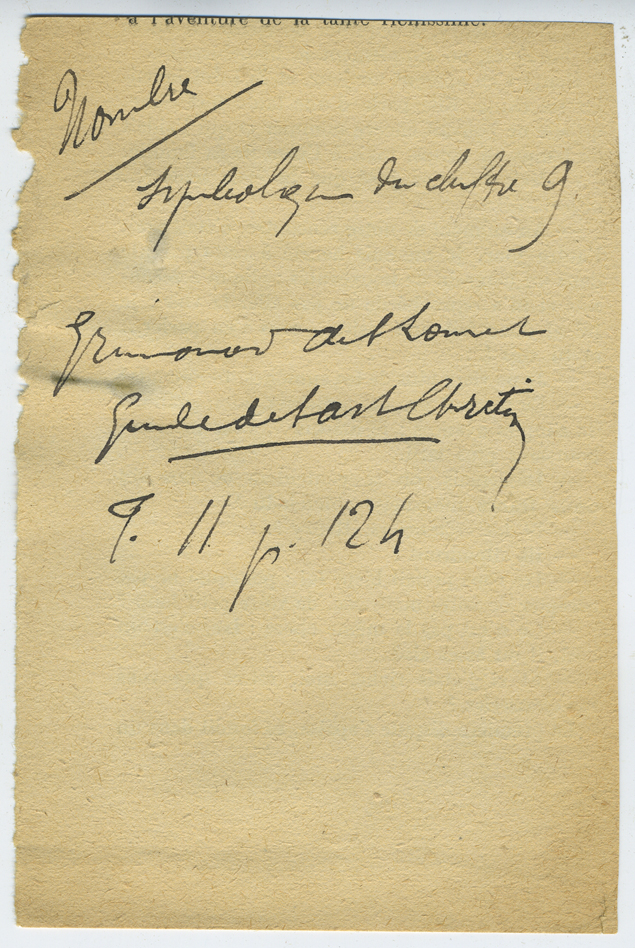 à l'aventure de la tante
Nombre
Symbologie du chiffre 9.
Grimouard de St Laurent
Guide de l'art Chrétien
T. II p. 124